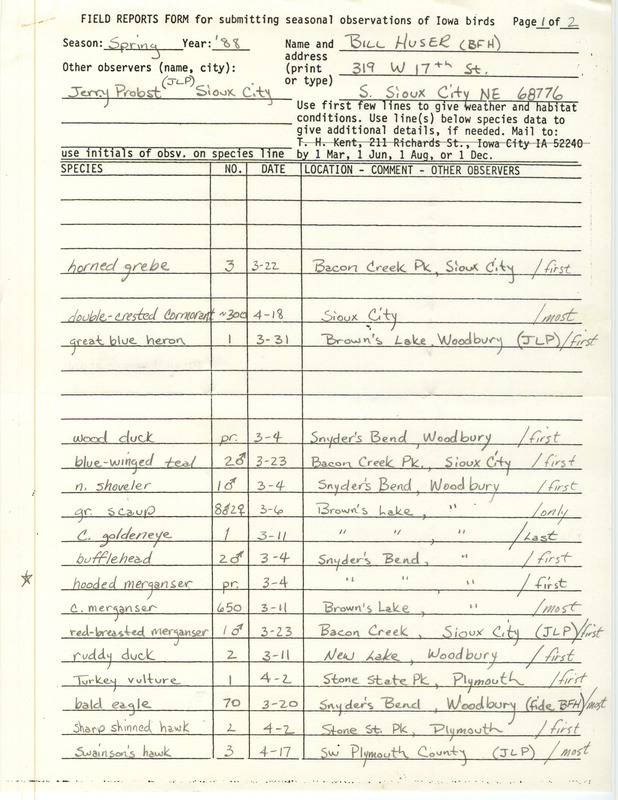 FIELD REPORTS FORM for submitting seasonal observations of Iowa birds Page 1 of 2
Season: Spring Year: '88 Name and BILL HUSER (BFH)
address
Other observers (name, city): (print 319 W 17th St.
(JLP) or type)
Jerry Probst Sioux City S. Sioux City NE 68776
Use first few lines to give weather and habitat
conditions. Use line(s) below species data to
give additional details, if needed. Mail to:
T. H. Kent, 211 Richards St., Iowa City IA 52240
use initials of obsv. on species line by 1 Mar, 1 Jun, 1 Aug, or 1 Dec.
SPECIES NO. DATE LOCATION - COMMENT - OTHER OBSERVERS
horned grebe 3 3-22 Bacon Creek Pk, Sioux City /first
double-crested cormorant ~300 4-18 Sioux City /most
great blue heron 1 3-31 Brown's Lake, Woodbury (JLP)/first
wood duck pr. 3-4 Snyder's Bend, Woodbury /first
blue-winged teal 2♂ 3-23 Bacon Creek Pk., Sioux City /first
n. shoveler 1♂ 3-4 Snyder's Bend, Woodbury /first
gr. scaup 8♂2♀ 3-6 Brown's Lake, " /only
C. goldeneye 1 3-11 " " , " /Last
bufflehead 2♂ 3-4 Snyder's Bend, " /first
hooded merganser pr. 3-4 " " , " /first
c. merganser 650 3-11 Brown's Lake, " /most
red-breasted merganser 1♂ 3-23 Bacon Creek, Sioux City (JLP)/first
ruddy duck 2 3-11 New Lake, Woodbury /first
Turkey vulture 1 4-2 Stone State Pk, Plymouth /first
bald eagle 70 3-20 Snyder's Bend, Woodbury (fide BFH)/most
Sharp shinned hawk 2 4-2 Stone St. Pk, Plymouth /first
Swainson's hawk 3 4-17 SW Plymouth County (JLP) /most